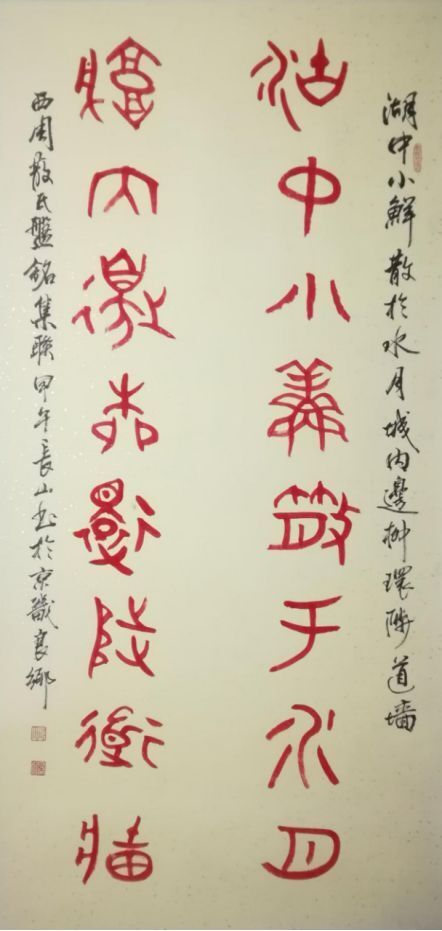 湖中小鮮散於水月城內邊柳環陟道墻
湖中小鮮散于水月
城內邊柳環陟道牆
西周散氏盤銘集聯甲午長山書於京畿良鄉